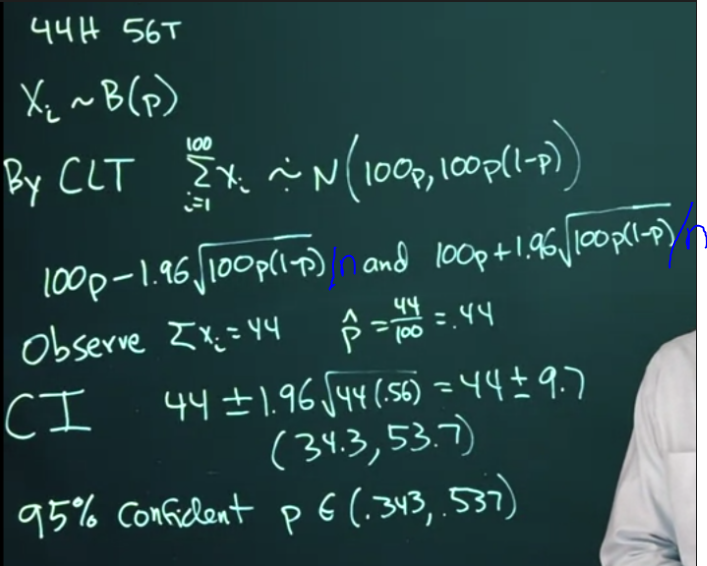 44H 56T
Xᵢ ~ B(p)
By CLT ∑_{i=1}^{100} Xᵢ ∻ N(100p, 100p(1-p))
100p - 1.96√(100p(1-p)) /n and 100p + 1.96√(100p(1-p)) /n
Observe ΣXᵢ = 44 p̂ = 44/100 = .44
CI 44 ± 1.96√(44(.56)) = 44 ± 9.7
(34.3, 53.7)
95% Confident p ∈ (.343, .537)